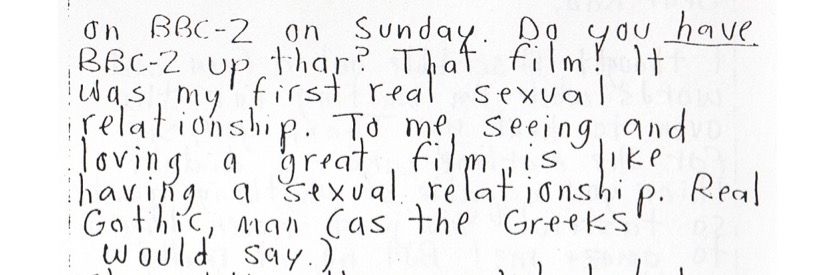 on BBC-2 on Sunday. Do you have
BBC-2 up thar? That film! It
was my first real sexua
relationship. To me, seeing and
loving a great film, is like
having a sexual relationship. Real
Gothic, man (as the Greeks
would say.)